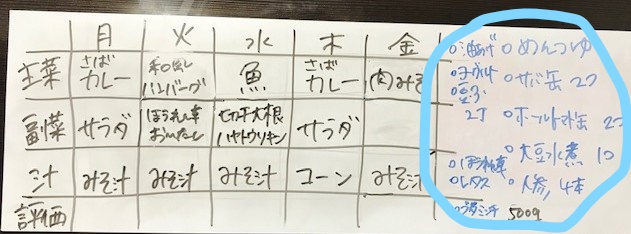 月 火 水 木 金
主菜 さばカレー 和風ハンバーグ 魚 さばカレー 肉みそ
副菜 サラダ ほうれん草おひたし 切干大根 サラダ
汁 みそ汁 みそ汁 みそ汁 コーン みそ汁
評価
○油あげ ○めんつゆ
○サバ缶 2つ
○豆ふ 2丁
○ホールトマト缶 2つ
○大豆水煮 1つ
○ほうれん草
○レタス ○人参 4本
500g